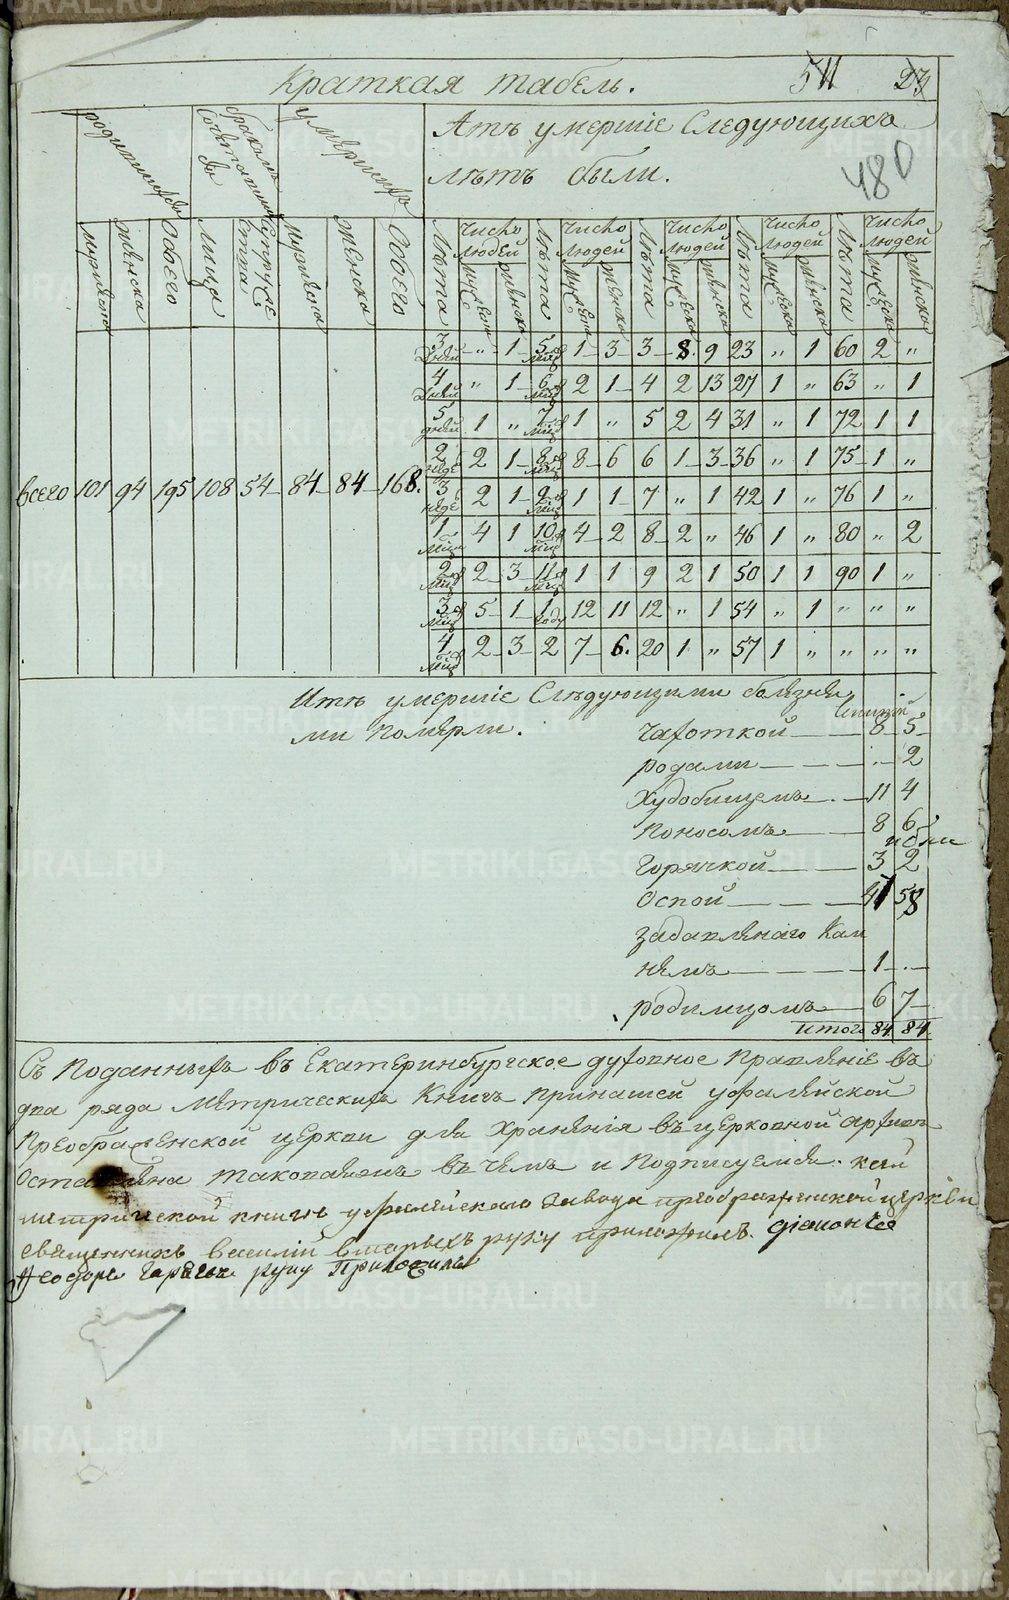 Краткая табель.
511 23
480
родившихся
бракомъ сочетавшихся
умершихъ
Атъ умершіе Следующихъ
лѣтъ были.
мужеска женска Обоего лица мужеска женска Обоего
Лѣта Число людей Лѣта Число людей Лѣта Число людей Лѣта Число людей Лѣта Число людей
мужеска женска мужеска женска мужеска женска мужеска женска мужеска женска
3 дней „ 1 5 1 3 3 8 9 23 „ 1 60 2 „
4 дней „ 1 6 2 1 4 2 13 27 1 „ 63 „ 1
5 дней 1 „ 7 1 „ 5 2 4 31 „ 1 72 1 1
2 неде 2 1 8 8 6 6 1 3 36 „ 1 75 1 „
всего 101 94 195 108 54 84 84 168.
3 неде 2 1 9 1 1 7 „ 1 42 1 „ 76 1 „
1 4 1 10 4 2 8 2 „ 46 1 „ 80 „ 2
2 2 3 11 1 1 9 2 1 50 1 1 90 1 „
3 5 1 1 году 12 11 12 „ 1 54 „ 1 „ „ „
4 2 3 2 7 6. 20 1 „ 57 1 „ „ „ „
Итѣ умершіе Слѣдующими болѣзня
ми померли.
Чахоткой 8 5
родами 2
Худобищемъ 11 4
Поносомъ 8 6
Горячкой 3 2
Оспой 47 58
задавленаго Кам
немъ 1
родимцомъ 6 7
итого 84 84.
Съ Поданныхъ въ Екатеринбургское духовное Правленіе въ
два ряда Метрическихъ Книгъ При нашей уфалейской
Преображенской церкви для Храненія въ церковной архивѣ
Оставлена таковаяжъ въ чемъ и Подписуемся. къ сей
метрической книге уфалейскаго завода преображенской церкви
священникъ василій вторыхъ руку приложилъ. діаконъ
Ѳеодоръ руку Приложилъ
METRIKI.GASO-URAL.RU